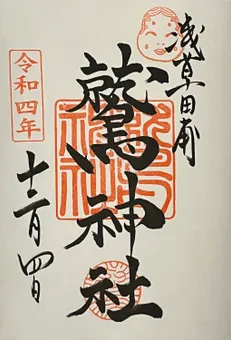 淺草田甫
鷲神社
令和四年
十一月四日